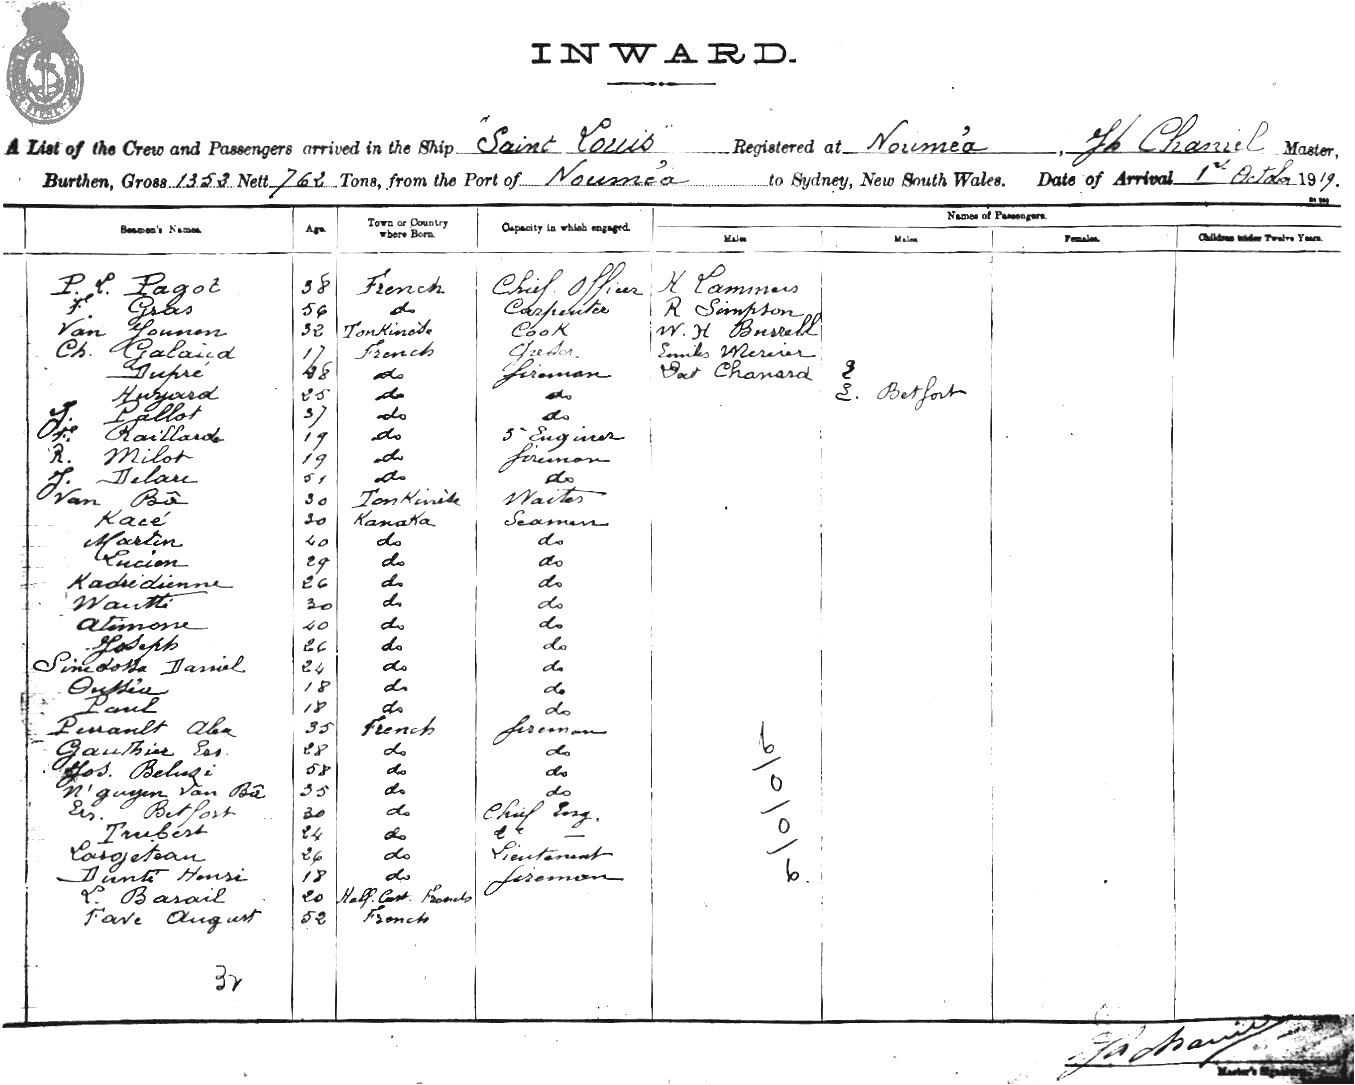 SYDNEY
INWARD.
A List of the Crew and Passengers arrived in the Ship "Saint Louis" Registered at Nouméa, Master,
Burthen, Gross 1353 Nett 762 Tons, from the Port of Nouméa to Sydney, New South Wales. Date of Arrival 1st October 1919.
Names of Passengers.
Seamen's Names. Age. Town or Country where Born. Capacity in which engaged. Males Males Females. Children under Twelve Years.
P. L. Pagot 38 French Chief Officer H Lammers
F. Gras 56 do Carpenter R Simpson
Van 32 Tonkinese Cook W. H Burrell
Ch. 17 French Emile Mercier
Dupré 48 do fireman Chanard
Huzard 25 do do E. Betfort
J. Pallot 37 do do
Raillard 19 do 5 Engineer
R. Milot 19 do fireman
J. 51 do do
Van Bâ 30 Tonkinése Waiter
Kacé 30 Kanaka Seamen
Martin 40 do do
Lucien 29 do do
Kadrédienne 26 do do
30 do do
Atimone 40 do do
Joseph 26 do do
Daniel 24 do do
18 do do
Paul 18 do do
Perrault Alex 35 French fireman
Gauthier 28 do do
Jos. Beluzi 58 do do
N'guyen Van Bâ 35 do do
Betfort 30 do Chief Eng.
Trubert 24 do 2e —
Largeteau 26 do Lieutenant
Henri 18 do fireman
L. Barail 20 Half. Cast. French
Fave August 52 French
6/0/0/6.
32
Master's Signature